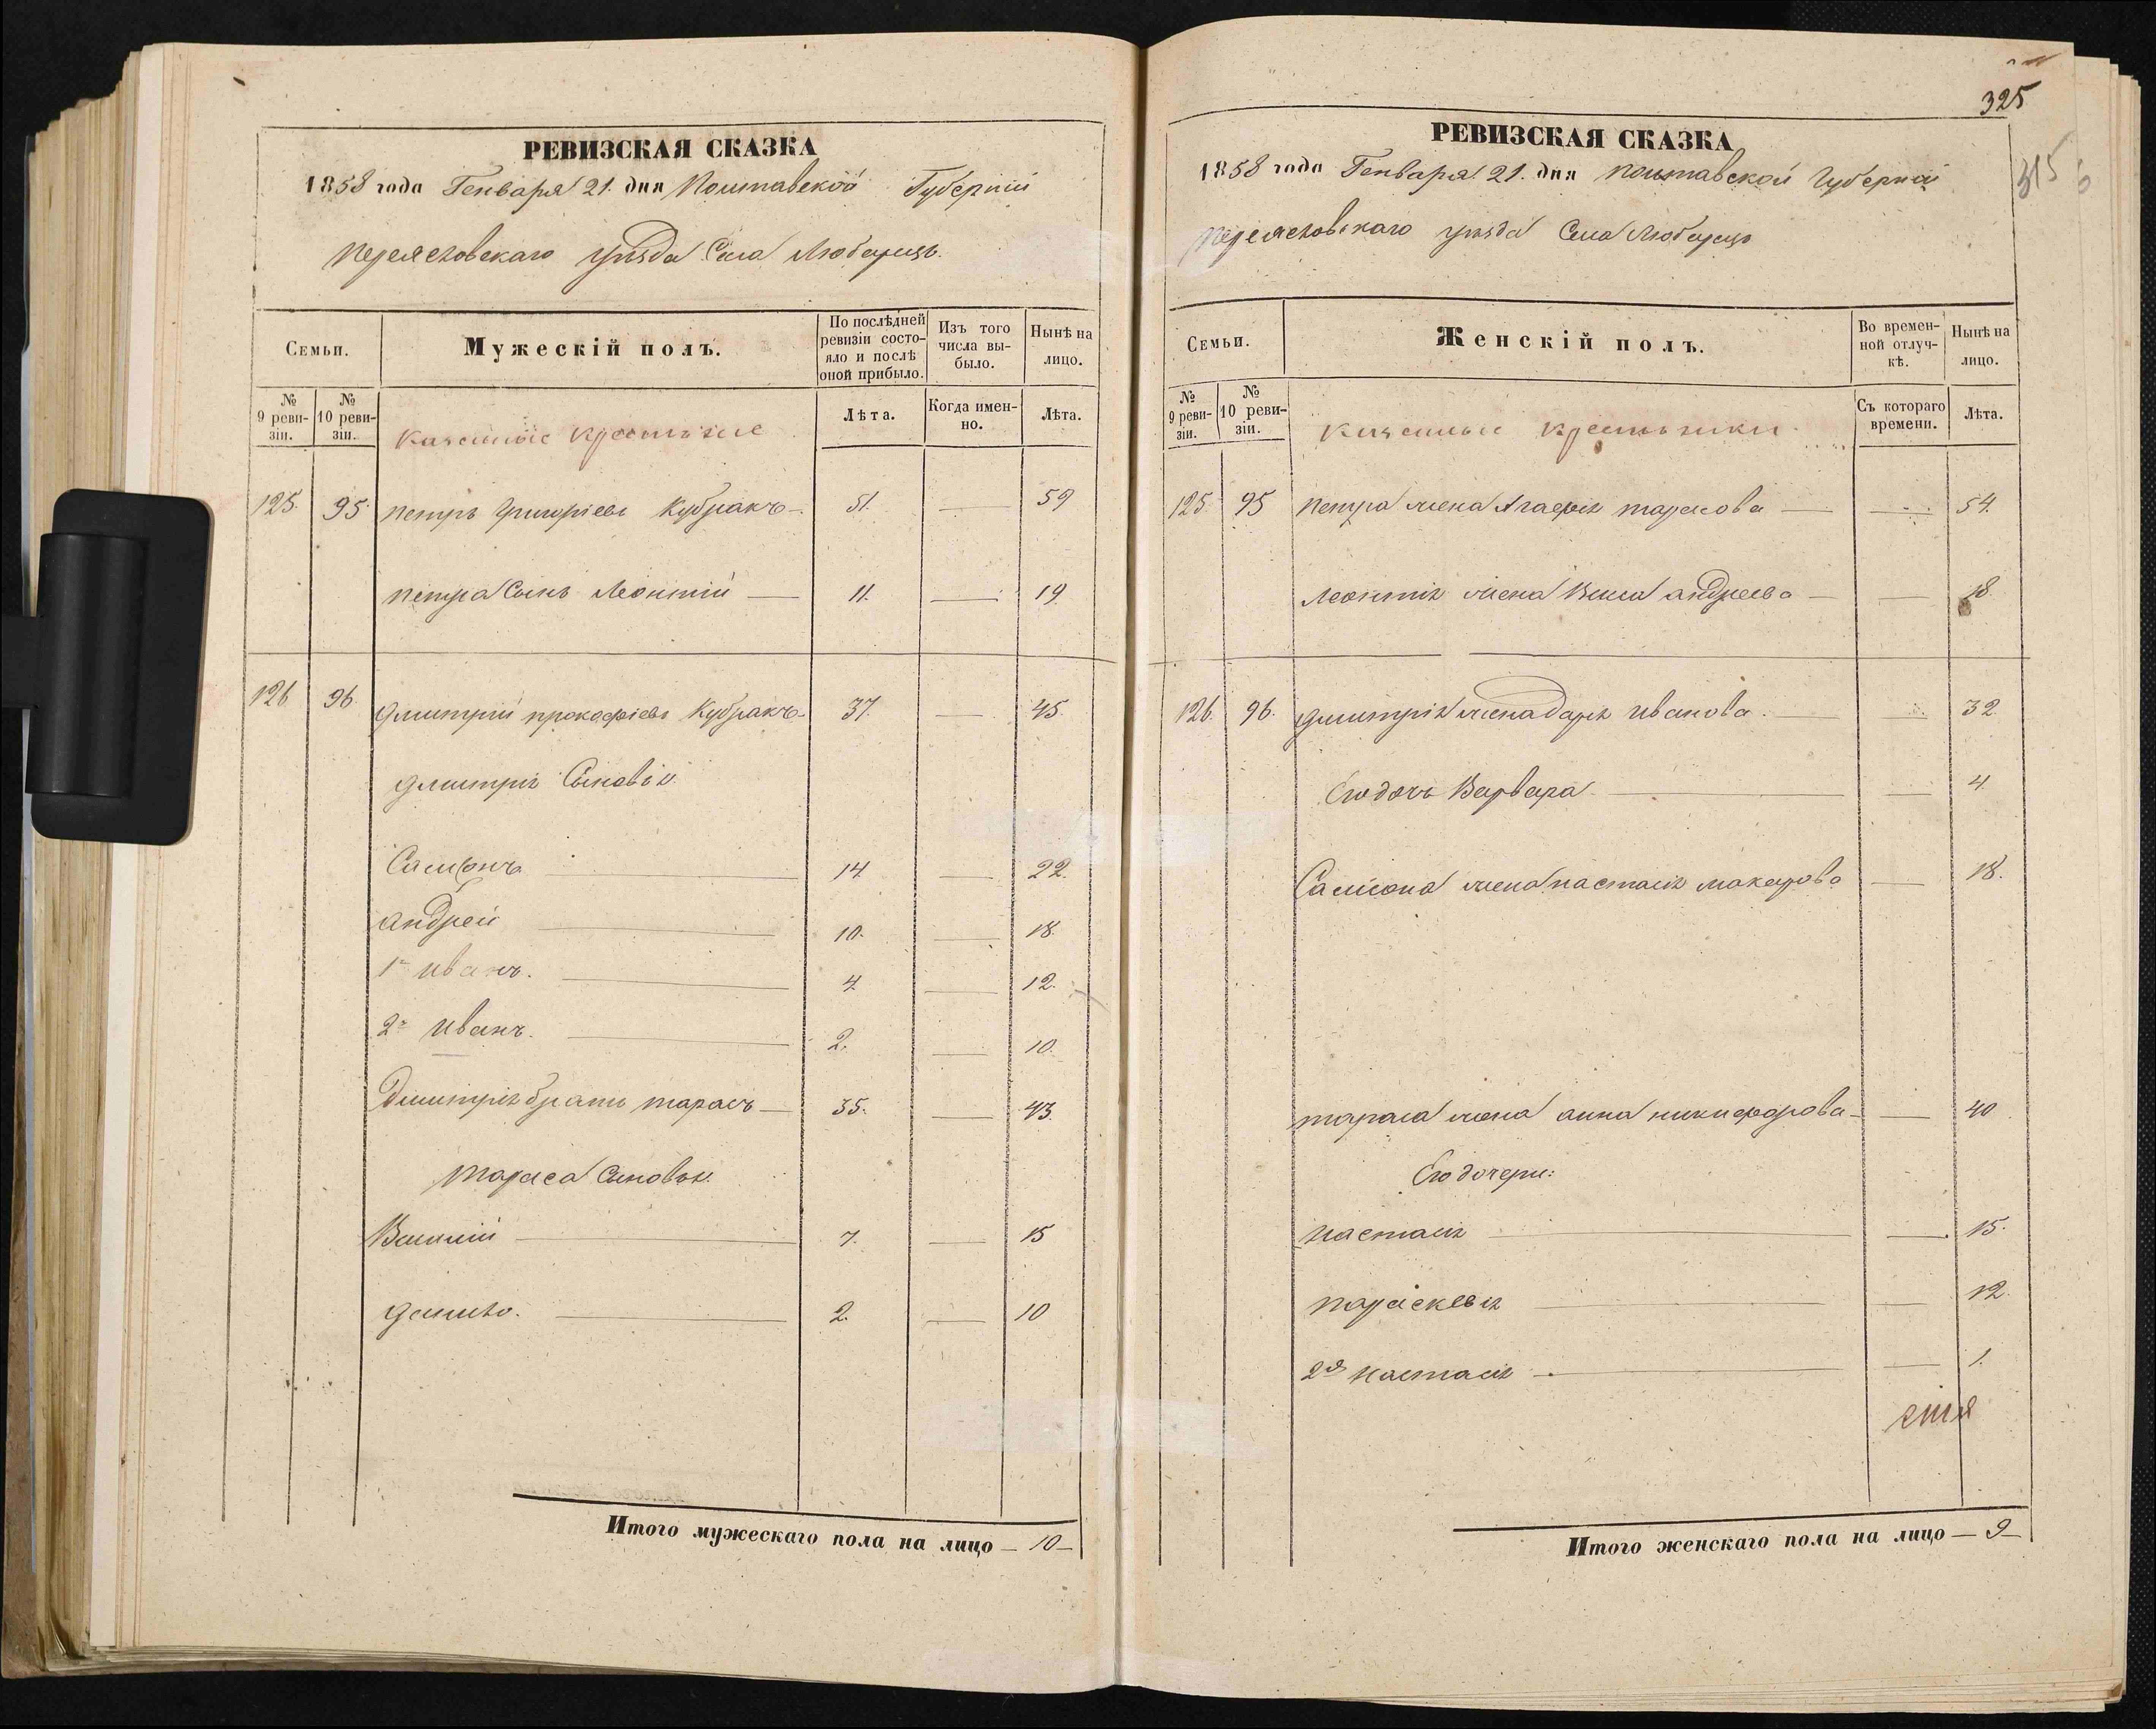 РЕВИЗСКАЯ СКАЗКА
1858 года Генваря 21. дня Полтавской Губернии
Переясловскаго уѣзда Села Любарецъ.
Семьи.
Мужескій полъ.
По послѣдней ревизіи состояло и послѣ оной прибыло.
Изъ того числа выбыло.
Нынѣ на лицо.
№ 9 ревизіи.
№ 10 ревизіи.
Казенные крестьяне
Лѣта.
Когда именно.
Лѣта.
125. 95 Петръ Григоріевъ Кубракъ — 51. — 59
Петра Сынъ Леонтій — 11. — 19
126 96 Дмитрій Прокофіевъ Кубракъ — 37. — 45.
Дмитрія Сыновья
Самсонъ — 14 — 22.
Андрей — 10. — 18.
1й Иванъ. — 4 — 12.
2й Иванъ. — 2. — 10.
Дмитрія братъ Тарасъ — 35. — 43.
Тараса Сыновья
Василій — 7. — 15
Данило. — 2. — 10
Итого мужескаго пола на лицо — 10 —
325
315
РЕВИЗСКАЯ СКАЗКА
1858 года Генваря 21. дня Полтавской Губерніи
Переясловскаго уѣзда Села Любарецъ
Семьи.
Женскій полъ.
Во временной отлучкѣ.
Нынѣ на лицо.
№ 9 ревизіи.
№ 10 ревизіи.
Казенные крестьянки.
Съ котораго времени.
Лѣта.
125 95 Петра жена Агафія Тарасова — — 54.
Леонтія жена Андреева — — 18
126. 96. Дмитрія жена Дарья Иванова. — 32
Его дочь Варвара — — 4.
Самсона жена Настасія Макарова — 18.
Тараса жена Анна Никифорова — — 40
Его дочери:
Настасія — — 15.
Параскевія — — 12.
2я Настасія — — 1.
Итого женскаго пола на лицо — 9 —